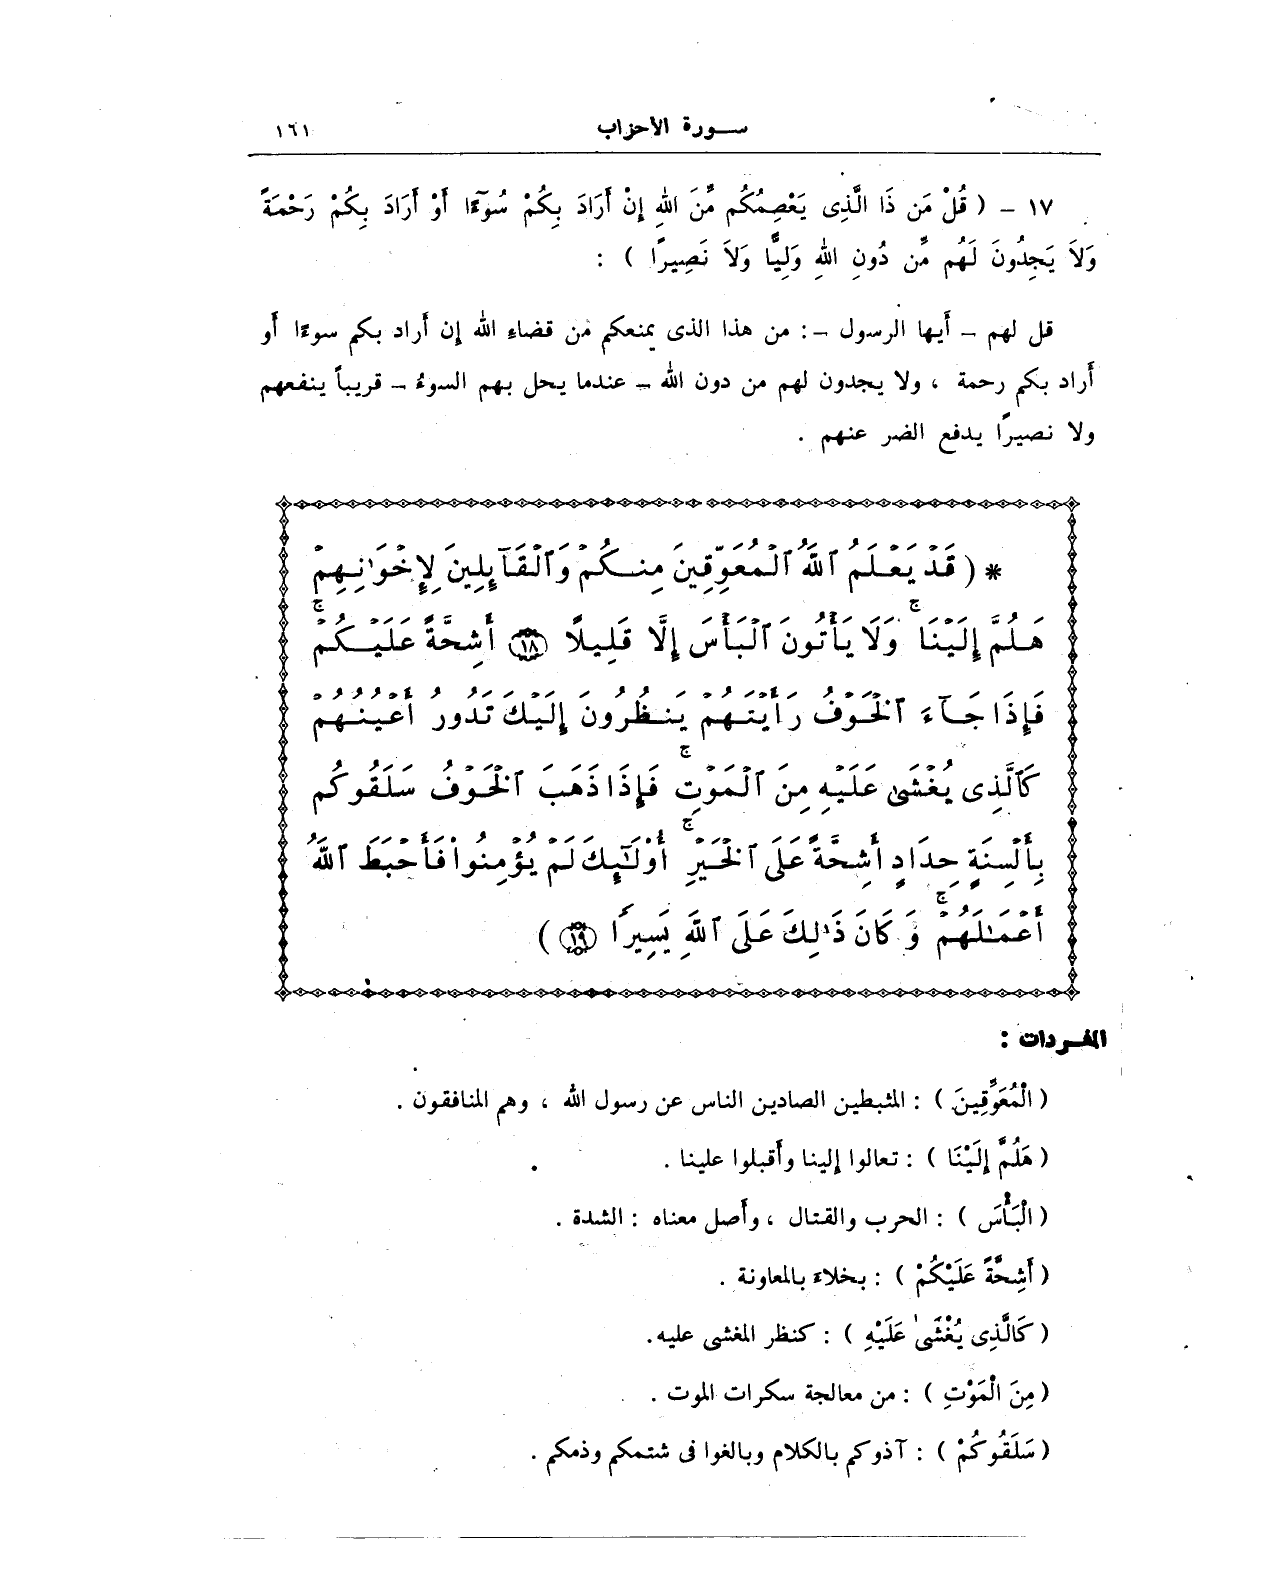 سورة الأحزاب ١٦١
١٧ - ( قُلْ مَن ذَا الَّذِى يَعْصِمُكُم مِّنَ اللهِ إِنْ أَرَادَ بِكُمْ سُوٓءًا أَوْ أَرَادَ بِكُمْ رَحْمَةً
وَلاَ يَجِدُونَ لَهُم مِّن دُونِ اللهِ وَلِيًّا وَلاَ نَصِيرًا ) :
قل لهم - أيها الرسول - : من هذا الذى يمنعكم من قضاء الله إن أراد بكم سوءًا أو
أراد بكم رحمة ، ولا يجدون لهم من دون الله - عندما يحل بهم السوءُ - قريباً ينفعهم
ولا نصيرًا يدفع الضر عنهم .
* ( قَدْ يَعْلَمُ ٱللَّهُ ٱلْمُعَوِّقِينَ مِنكُمْ وَٱلْقَآئِلِينَ لِإِخْوَٰنِهِمْ
هَلُمَّ إِلَيْنَا ۖ وَلَا يَأْتُونَ ٱلْبَأْسَ إِلَّا قَلِيلًا ١٨ أَشِحَّةً عَلَيْكُمْ ۖ
فَإِذَا جَآءَ ٱلْخَوْفُ رَأَيْتَهُمْ يَنظُرُونَ إِلَيْكَ تَدُورُ أَعْيُنُهُمْ
كَٱلَّذِى يُغْشَىٰ عَلَيْهِ مِنَ ٱلْمَوْتِ ۖ فَإِذَا ذَهَبَ ٱلْخَوْفُ سَلَقُوكُم
بِأَلْسِنَةٍ حِدَادٍ أَشِحَّةً عَلَى ٱلْخَيْرِ ۚ أُوْلَٰٓئِكَ لَمْ يُؤْمِنُوا۟ فَأَحْبَطَ ٱللَّهُ
أَعْمَٰلَهُمْ ۚ وَكَانَ ذَٰلِكَ عَلَى ٱللَّهِ يَسِيرًا ١٩ )
المفردات :
( الْمُعَوِّقِينَ ) : المثبطين الصادين الناس عن رسول الله ، وهم المنافقون .
( هَلُمَّ إِلَيْنَا ) : تعالوا إلينا وأقبلوا علينا .
( الْبَأْسَ ) : الحرب والقتال ، وأصل معناه : الشدة .
( أَشِحَّةً عَلَيْكُمْ ) : بخلاء بالمعاونة .
( كَالَّذِى يُغْشَىٰ عَلَيْهِ ) : كنظر المغشى عليه.
( مِنَ الْمَوْتِ ) : من معالجة سكرات الموت .
( سَلَقُوكُمْ ) : آذوكم بالكلام وبالغوا فى شتمكم وذمكم .